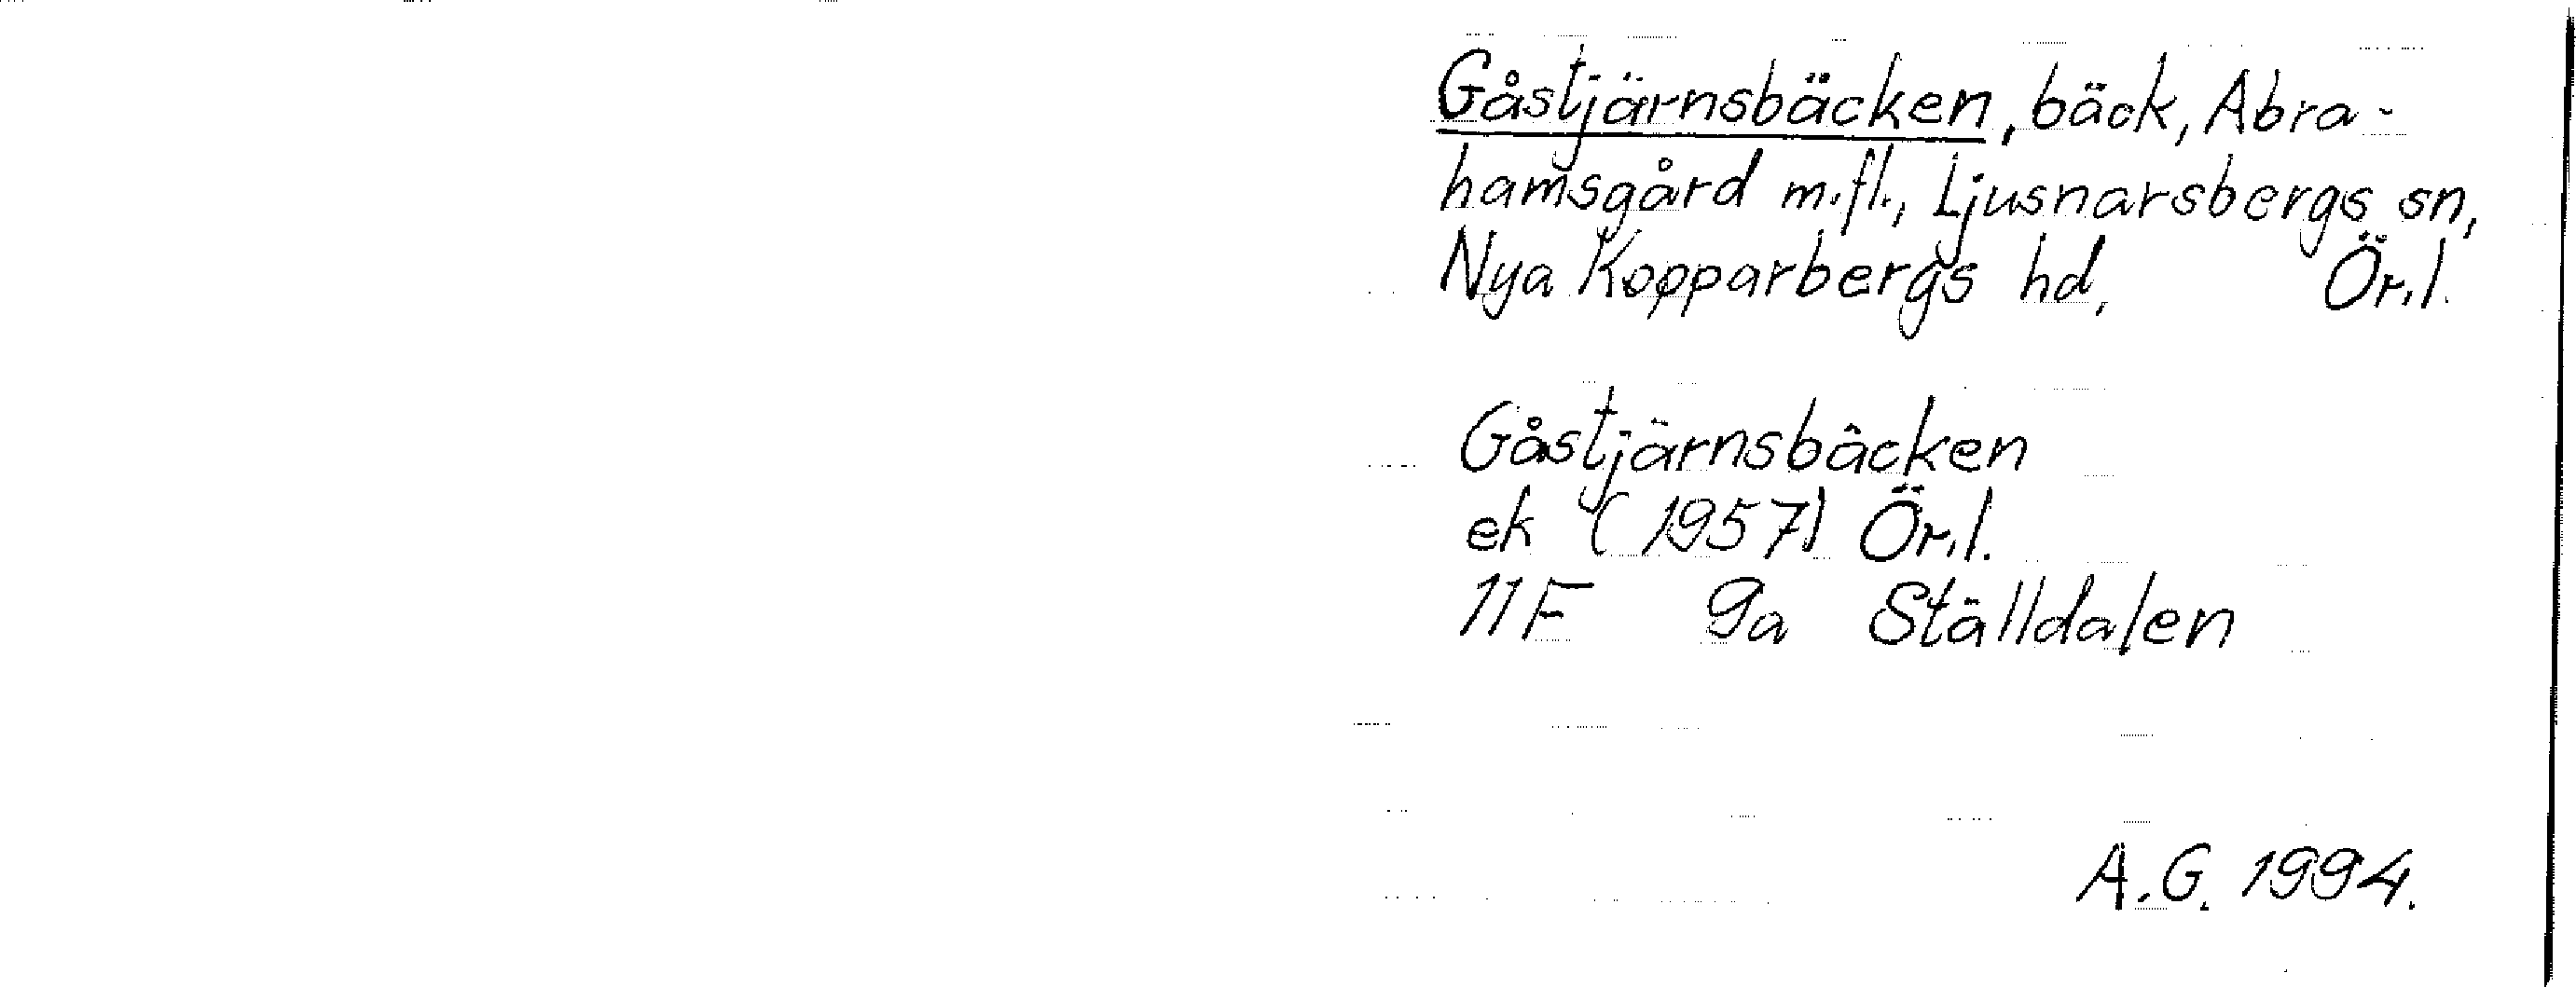 Gåstjärnsbäcken, bäck, Abra-
hamsgård m.fl., Ljusnarsbergs sn,
Nya Kopparbergs hd, Ör.l.
Gåstjärnsbäcken
ek (1957) Ör.l.
11F 9a Ställdalen
A.G. 1994.